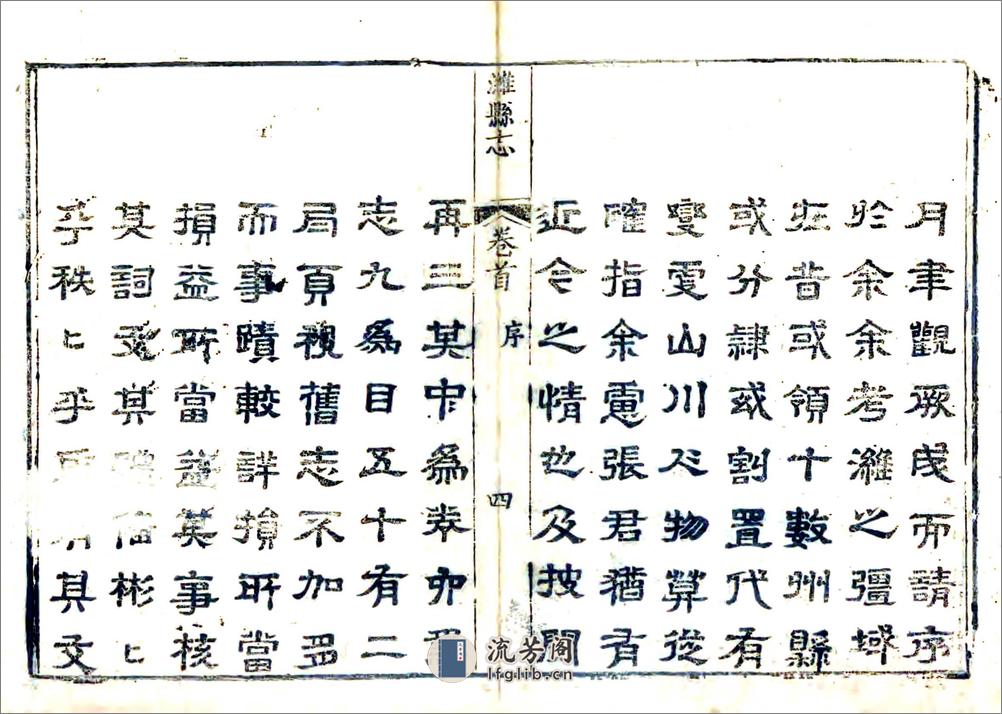 月聿觀厥成而請序
於余余考濰之疆域
在昔或領十數州縣
或分隸或割置代有
變更山川人物從
確指余慮張君猶有
近今之情也及披閱
濰縣志
卷首
序
四
再三其中為卷為
志九為目五十有二
局頁視舊志不加多
而事蹟較詳損所當
損益所當益其事核
其詞文其備彬匕
乎秩匕乎其文
流芳阁
lfglib.cn